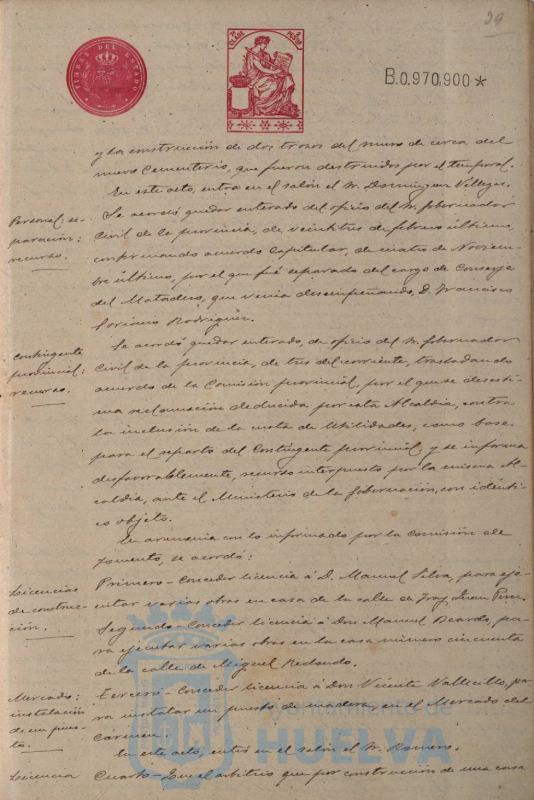 29
TIMBRE DEL ESTADO
CLASE
PESETAS
B.0.970,900*
y la construccion de dos trozos del muro de cerca del
nuevo Cementerio, que fueron destruidos por el temporal.
En este acto, entra en el salón el Sr. Domínguez Villegas.
Personal, se-
paración;
recurso.
Se acordó quedar enterado del oficio del Sr. Gobernador
Civil de la provincia, de veintitus de febrero último,
confirmando acuerdo Capitular, de cuatro de Noviem-
bre último, por el que fué separado del cargo de Conserje
del Matadero, que venia desempeñando, D. Francisco
Soriano Rodríguez.
Contingente
provincial;
recurso.
Se acordó quedar enterado, de oficio del Sr. Gobernador
Civil de la provincia, de tres del corriente, trasladando
acuerdo de la Comisión provincial, por el que se desesti-
ma reclamación deducida por esta Alcaldía, contra
la inclusión de la cuota de Utilidades, como base
para el reparto del Contingente provincial, y se informa
desfavorablemente, recurso interpuesto por la misma Al-
caldía, ante el Ministerio de la Gobernación, con idénti-
co objeto.
En armonia con lo informado por la Comisión de
Fomento, se acordó:
Licencias
de construc-
ción.
Primero - Conceder licencia á D. Manuel Silva, para eje-
cutar varias obras en casa de la calle de Fray Juan Perez.
Segundo - Conceder licencia á Don Manuel pa-
ra ejecutar varias obras en la casa número cincuenta
de la calle de Miguel Redondo.
Mercado;
instalación
de un pues-
to.
Tercero - Conceder licencia á Don Vicente Vallecillo, pa-
ra instalar un puesto de madera, en el Mercado del
Carmen.
En este acto, entró en el salón el Sr. Romero.
Licencia
Cuarto - En el arbitrio que por construcción de una casa
Ayuntamiento de
HUELVA